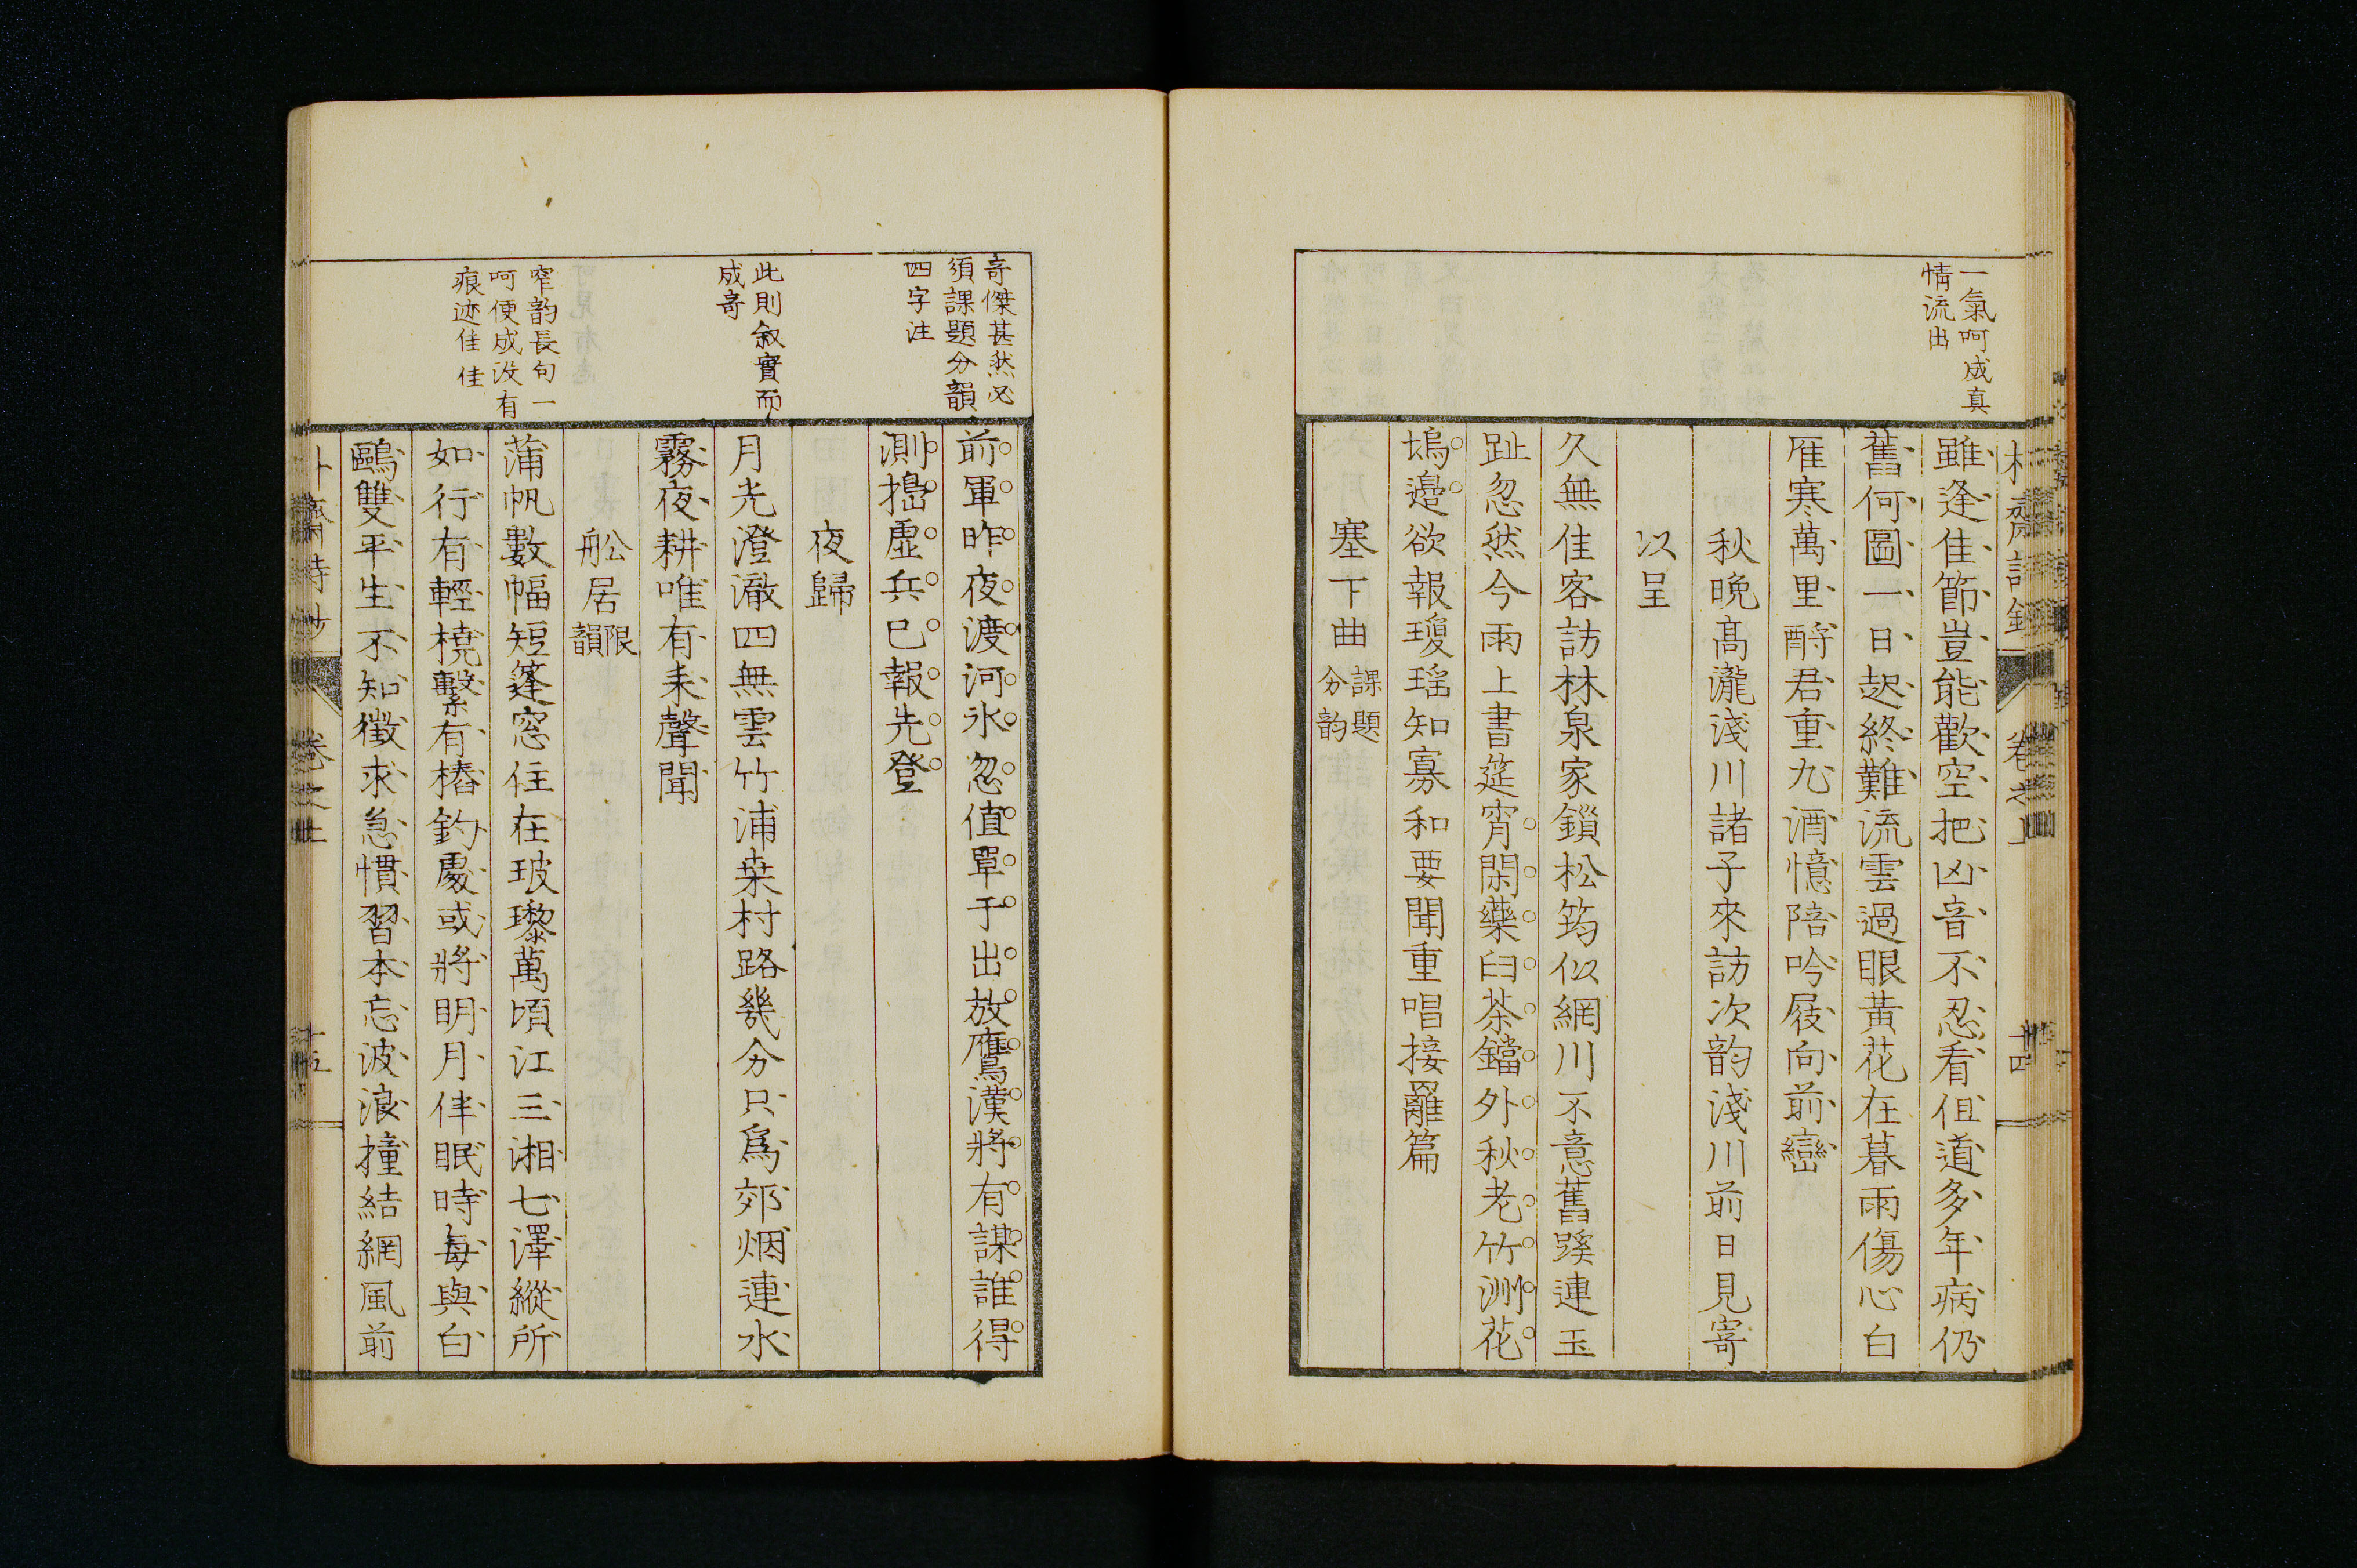 一氣呵成真
情流出
雖逢佳節豈能歡空把凶音不忍看但道多年病仍
舊何圖一日起終難流雲過眼黃花在暮雨傷心白
雁寒萬里酹君重九酒憶陪吟屐向前巒
秋晩高瀧淺川諸子來訪次韵淺川前日見寄
以呈
久無佳客訪林泉家鎖松筠似網川不意舊蹊連玉
趾忽然今雨上書筵宵閑藥臼茶鐺外秋老竹洲花
塢邊欲報瓊瑶知寡和要聞重唱接䍦篇
塞下曲課題
分韵
卷之上
十四
奇傑甚然必
須課題分韻
四字注
前軍昨夜渡河氷忽值單于出放鷹漢將有謀誰得
測搗虛兵已報先登
夜歸
此則叙實而
成奇
月光澄澈四無雲竹浦桒村路幾分只爲郊烟連水
霧夜耕唯有耒聲聞
舩居限
韻
窄韵長句一
呵便成没有
痕迹佳佳
蒲帆數幅短篷窓住在玻瓈萬頃江三湘七澤縱所
如行有輕橈繫有樁釣處或將明月伴眠時每與白
鷗雙平生不知徵求急慣習本忘波浪撞結網風前
卷之上
十五